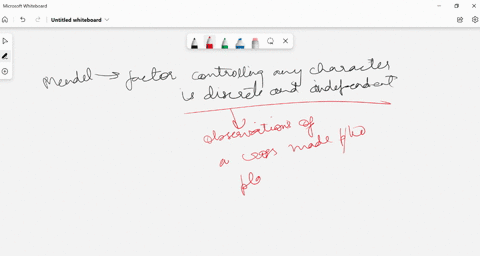 Microsoft Whiteboard
Untitled whiteboard
Mendel → factor controlling any character
is discrete and independent
observations of
a cross made b/w
pla